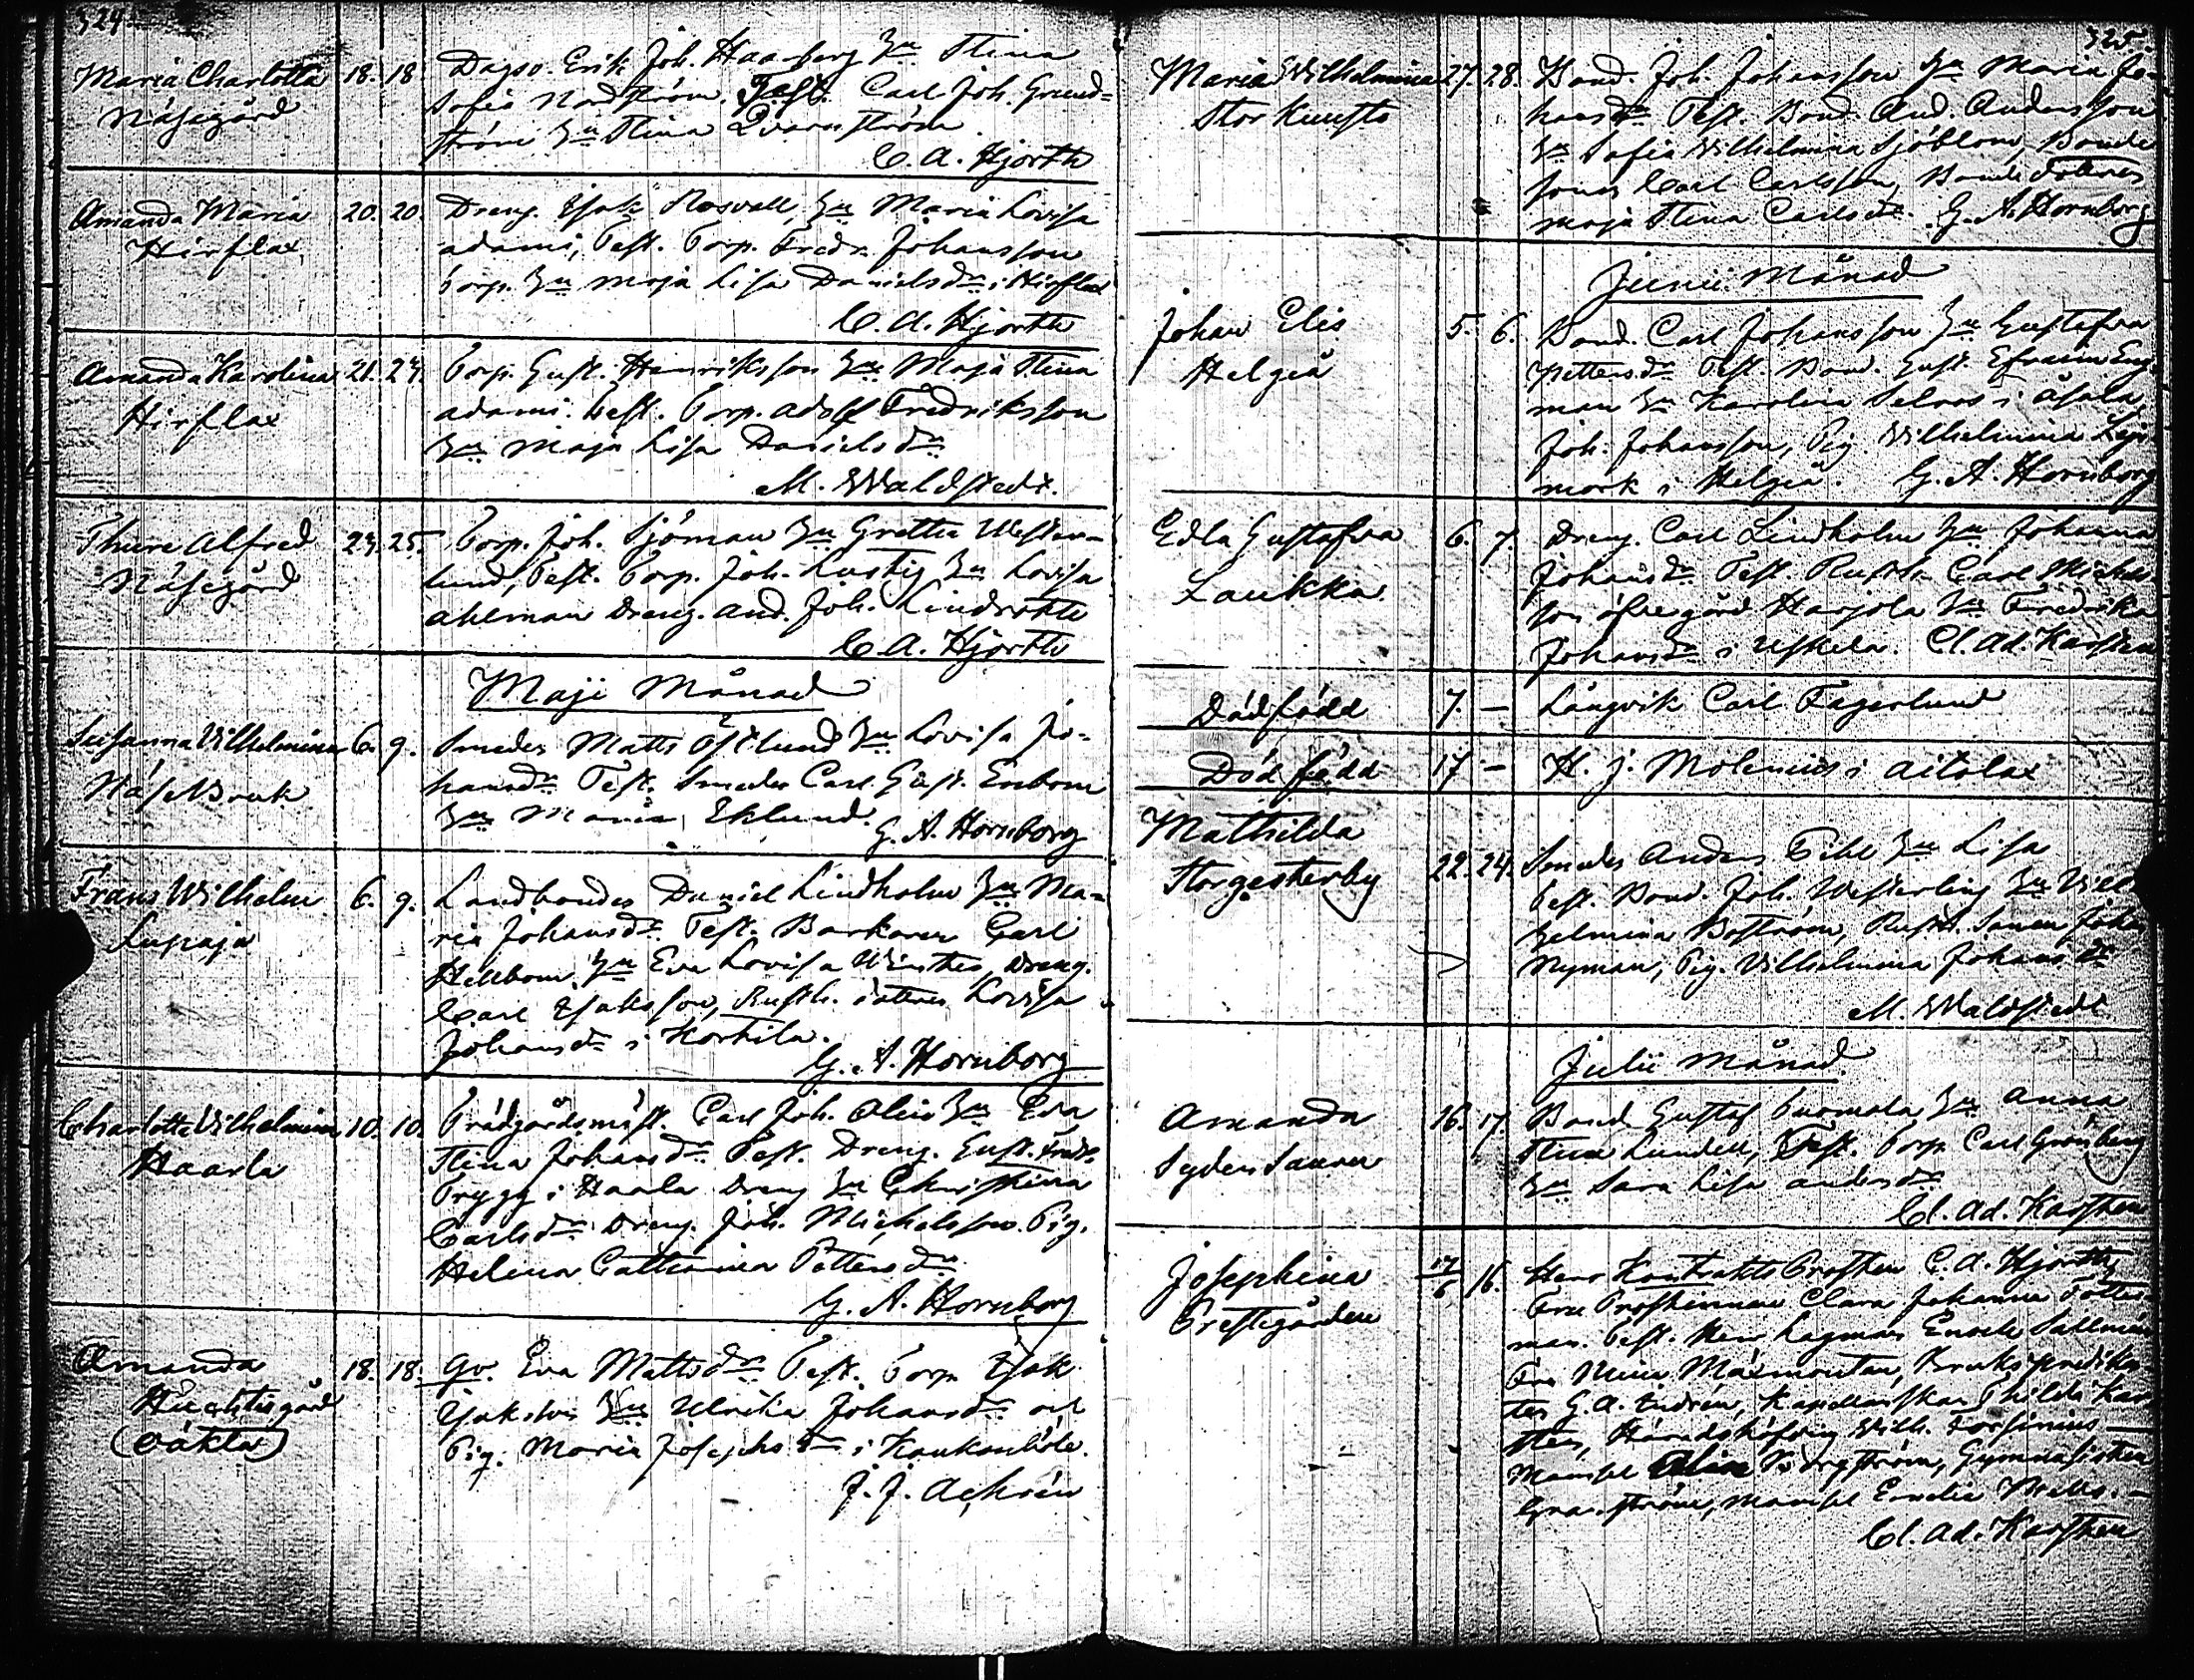 324.
Maria Charlotta 18. 18. Dagsv. Erik Joh. Haarberg Hu Stina
Näsegård Sofia Nordström. Test. Carl Joh. Grund-
ström Hu Stina Qvarnström.
C. A. Hjorth
Amanda Maria 20. 20. Dreng. Isak Rosvall, Hu Maria Lovisa
Hirflax adami, Test. Torp. Fredr. Johansson
Torp. Hu Maja Lisa Danielsdr i Hirflax
C. A. Hjorth
Amanda Karolina 21. 24. Torp. Gust. Henriksson Hu Maja Stina
Hirflax adami. Test. Torp. Adolf Fredriksson
Hu Maja Lisa Danielsdr
M. Waldstedt.
Thure Alfred 24. 25. Torp. Joh. Sjöman Hu Gretha Wester-
Näsegård lund, Test. Torp. Joh. Lustig Hu Lovisa
ahlman Dreng. And. Joh. Lindroth
C. A. Hjorth
Maji Månad
Susanna Vilhelmina 6. 9. Smeden Matts Östlund Hu Lovisa Jo-
Näse Bruk hansdr Test. Smeden Carl Gust. Enbom
Hu Maria Eklund.
G. A. Hornborg
Frans Wilhelm 6. 9. Landbonden Daniel Lindholm Hu Ma-
Lupaja ria Johansdr Test. Barkaren Carl
Hellbom Hu Eva Lovisa Winther, Dreng.
Carl Isaksson, Rusth. dottren Lovisa
Johansdr i Korkila.
G. A. Hornborg
Charlotta Vilhelmina 10. 10. Trädgårdsmäst. Carl Joh. Alin Hu Eva
Haarla Stina Johansdr Test. Dreng. Gust. Fredr.
Trygg i Haarla Dreng Hu Christina
Carlsdr Dreng. Joh. Michelsson. Pig.
Helena Catharina Pettersdr
G. A. Hornborg
Amanda 18. 18. Qv. Eva Mattsdr Test. Torp. Isak
Isaksson Hu Ulrika Johansdr och
(oäkta) Pig. Maria Josephsdr i Kaukanböle.
J. J. Achrén
325.
Maria Wilhelmina 27. 28. Bond. Joh. Johansson Hu Maria Jo-
Stor Kunsto hansdr Test. Bond. And. Andersson
Hu Sofia Wilhelmina Sjöblom, Bonde
sonen Carl Carlsson, Bonde dottren
Maja Stina Carlsdr. G. A. Hornborg
Junii Månad
Johan Elis 5. 6. Bond. Carl Johansson Hu Gustafva
Helgiä Pettersdr Test. Bond. Gust. Efraim Eng-
man Hu Karolina Selroos i
Joh. Johansson, Pig. Wilhelmina
mark i Helgiä. G. A. Hornborg
Edla Gustafva 6. 7. Dreng. Carl Lindholm Hu Johanna
Laukka Johansdr Test. Rusth. Carl Michels-
son öfvergård Harjola Hu Fredrika
Johansdr i Uskela. Cl. Ad. Karsten
Dödfödd 7. — Långvik Carl Fagerlund
Död född 17 — H. J. Molenius i Aitolax
Mathilda
Storgesterby 22. 24. Smeden Anders Pihl Hu Lisa
Test. Bond. Joh. Westerling Hu Vil-
helmina Boström, Rusth. Sonen Johan
Nyman, Pig. Vilhelmina Johansdr
M. Waldstedt
Julii Månad.
Amanda 16. 17. Bond. Gustaf Tuomola Hu Anna
Syden Sauru Stina Lundell, Test. Torp. Carl Grönberg
Hu Sara Lisa Andersdr
Cl. Ad. Karsten
Josephina 17/6 16. Herr Kontrakts Prosten C. A. Hjorth,
Prestegården Fru Prostinnan Clara Johanna
man. Test. Herr Lagman Enoch Sallmén
Fru Mina Maxmontan, Bruks predikan-
ten G. A. Lindrén, Kapellanskan Thilda Kar-
sten, Häradshöfding Wilh. Forsinius
Mamsel Alina Bergström, Gymnasisten
Granström, Mamsel Emelie
Cl. Ad. Karsten